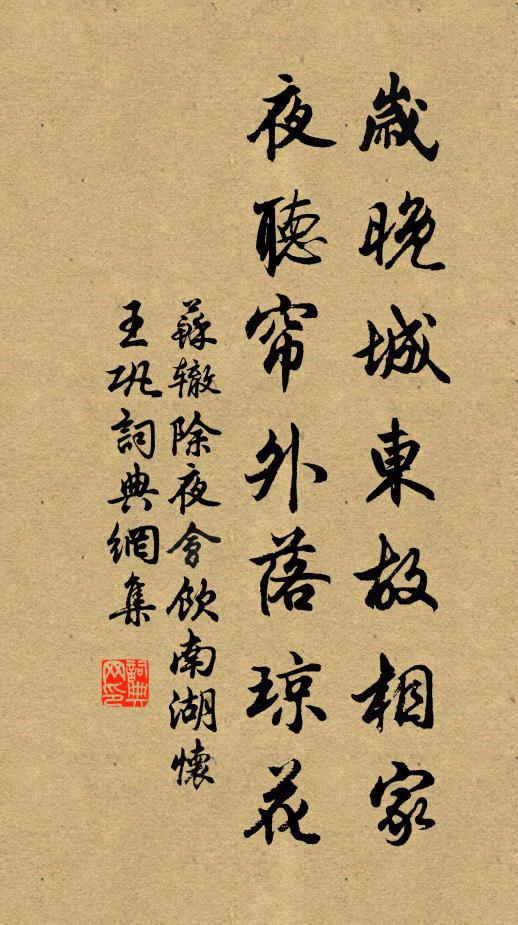 歲晚城東故相家
夜聽帘外落琼花
蘇辙除夜會飲南湖懷
王巩詞典網集
詞典
网印